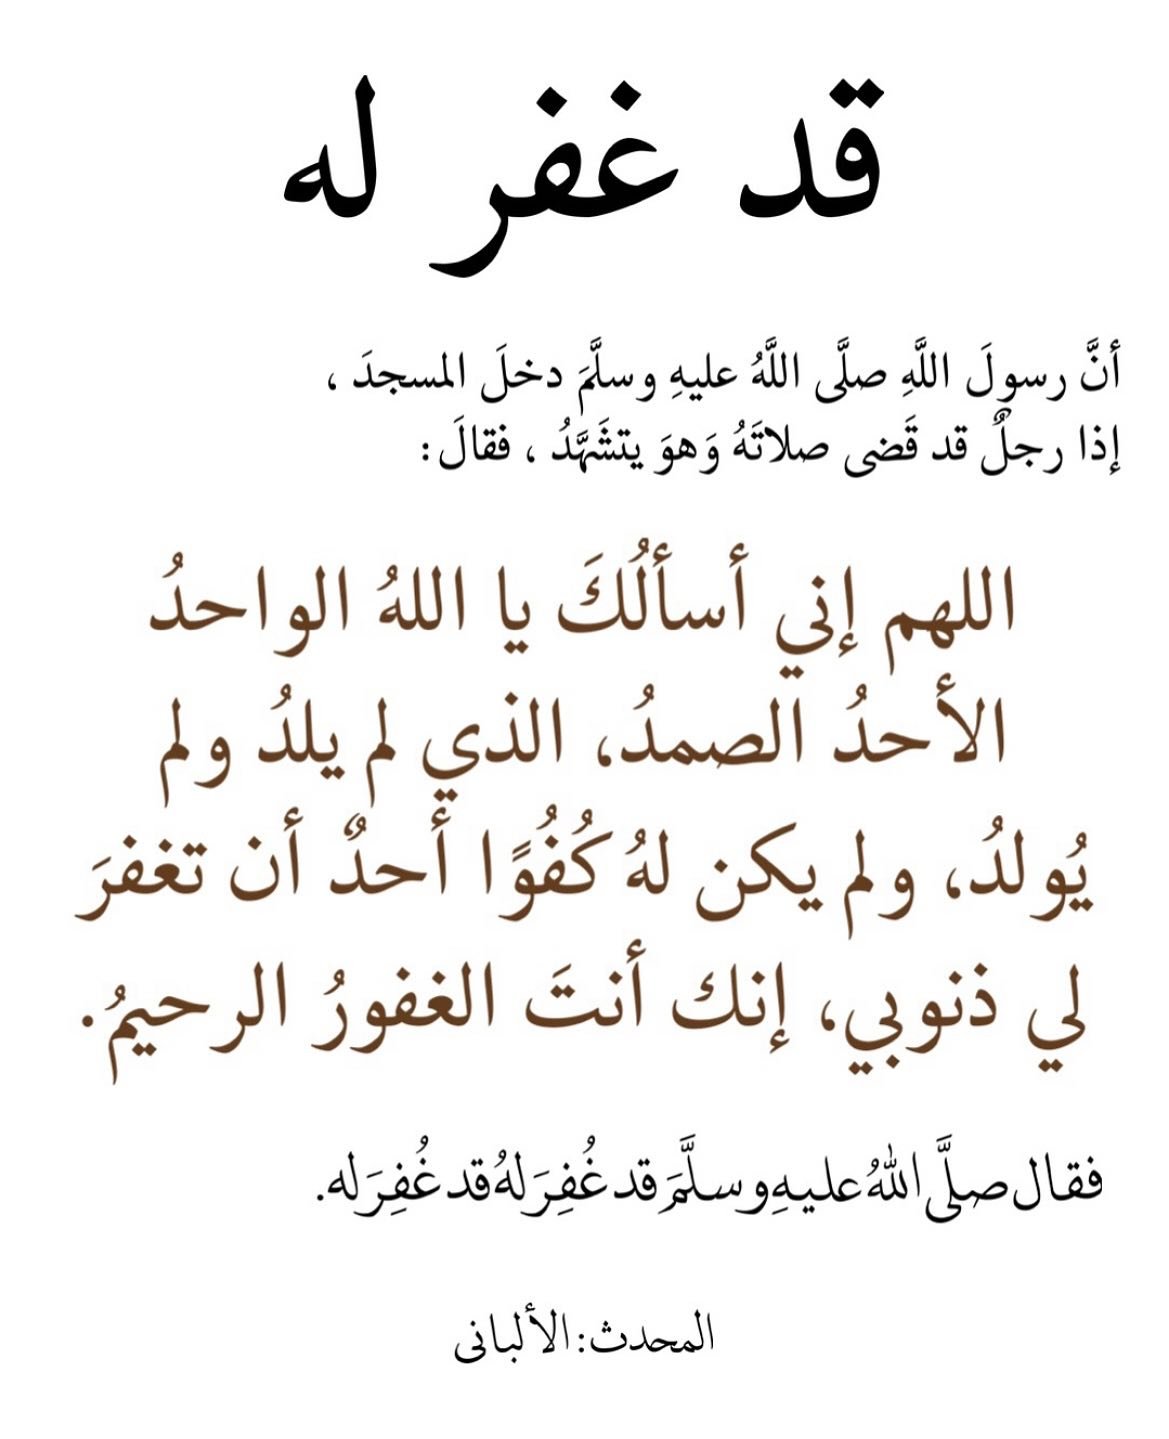 قد غفر له
أنَّ رسولَ اللَّهِ صلَّى اللَّهُ عليهِ وسلَّمَ دخلَ المسجدَ ،
إذا رجلٌ قد قَضى صلاتَهُ وَهوَ يتشَهَّدُ ، فقالَ:
اللهم إني أسألُكَ يا اللهُ الواحدُ
الأحدُ الصمدُ، الذي لم يلدُ ولم
يُولدُ، ولم يكن لهُ كُفُوًا أحدٌ أن تغفرَ
لي ذنوبي، إنك أنتَ الغفورُ الرحيمُ.
فقال صلَّى اللهُ عليهِ وسلَّمَ قد غُفِرَ لهُ قد غُفِرَ له.
المحدث: الألبانى